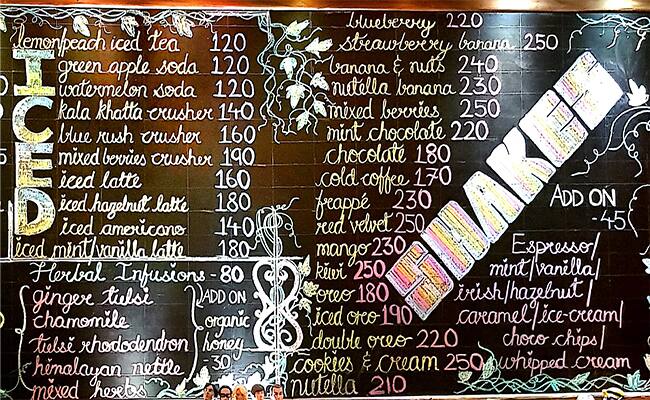 ICED
lemon/peach iced tea 120
green apple soda 120
watermelon soda 120
kala khatta crusher 140
blue rush crusher 160
mixed berries crusher 190
iced latte 160
iced hazelnut latte 180
iced americano 140
iced mint/vanilla latte 180
Herbal Infusions - 80
ginger tulsi
chamomile
tulsi rhododendron
himalayan nettle
mixed herbs
ADD ON
organic
honey
- 30
SHAKES
blueberry 220
strawberry banana 250
banana & nuts 240
nutella banana 230
mixed berries 250
mint chocolate 220
chocolate 180
cold coffee 170
frappé 230
red velvet 250
mango 230
kiwi 250
oreo 180
iced oreo 190
double oreo 220
cookies & cream 250
nutella 210
ADD ON
- 45
Espresso/
mint/vanilla/
irish/hazelnut/
caramel/ice-cream/
choco chips/
whipped cream